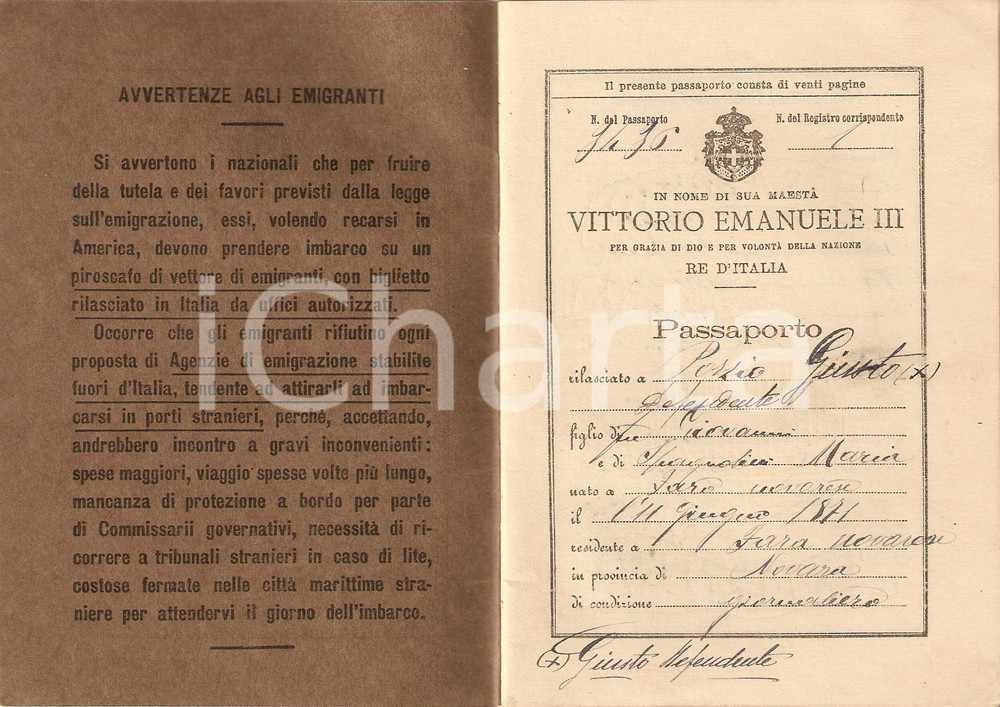 AVVERTENZE AGLI EMIGRANTI
Si avvertono i nazionali che per fruire
della tutela e dei favori previsti dalla legge
sull'emigrazione, essi, volendo recarsi in
America, devono prendere imbarco su un
piroscafo di vettore di emigranti, con biglietto
rilasciato in Italia da uffici autorizzati.
Occorre che gli emigranti rifiutino ogni
proposta di Agenzie di emigrazione stabilite
fuori d'Italia, tendente ad attirarli ad imbar-
carsi in porti stranieri, perchè, accettando,
andrebbero incontro a gravi inconvenienti:
spese maggiori, viaggio spesse volte più lungo,
mancanza di protezione a bordo per parte
di Commissarii governativi, necessità di ri-
correre a tribunali stranieri in caso di lite,
costose fermate nelle città marittime stra-
niere per attendervi il giorno dell'imbarco.
Il presente passaporto consta di venti pagine
N. del Passaporto N. del Registro corrispondente
1
IN NOME DI SUA MAESTÀ
VITTORIO EMANUELE III
PER GRAZIA DI DIO E PER VOLONTÀ DELLA NAZIONE
RE D'ITALIA
Passaporto
rilasciato a Giusto (x)
Defendente
figlio di fu Giovanni
e di Maria
nato a Fara novarese
il l'11 giugno 1871
residente a Fara novarese
in provincia di Novara
di condizione giornaliero
(x) Giusto Defendente
iCharta